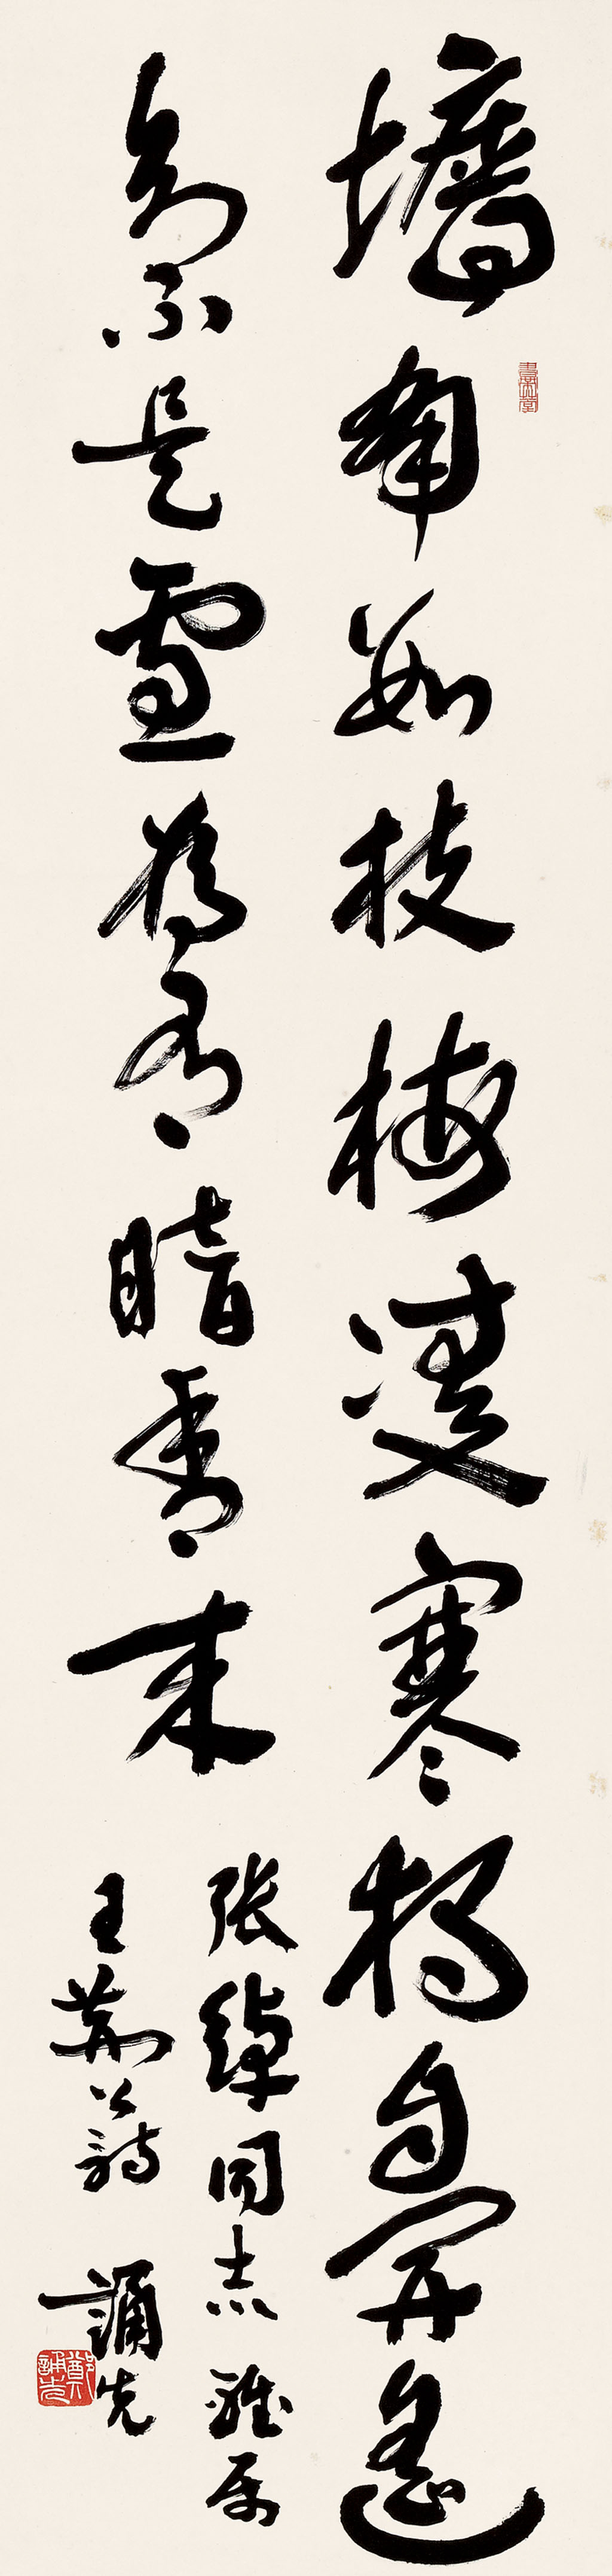 墙角数枝梅凌寒独自开遥
知不是雪为有暗香来
张绰同志雅属
王荆公诗 诵先
郑诵先